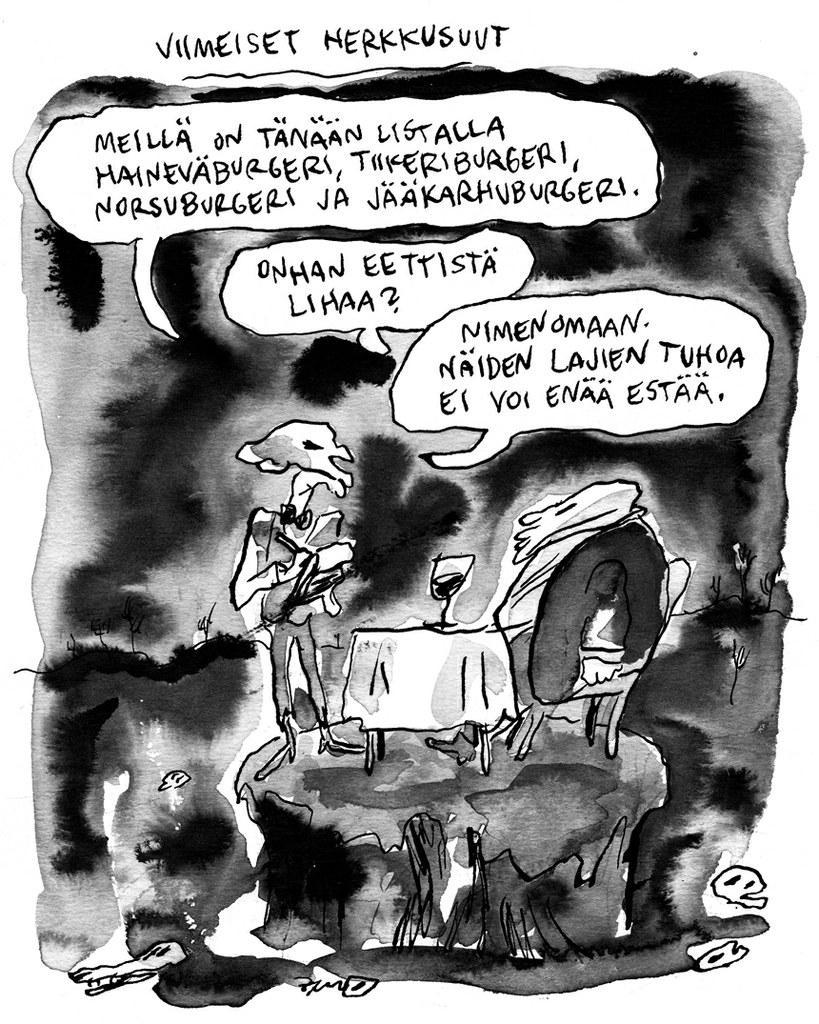 VIIMEISET HERKKUSUUT
MEILLÄ ON TÄNÄÄN LISTALLA
HAINEVÄBURGERI, TIIKERIBURGERI,
NORSUBURGERI JA JÄÄKARHUBURGERI.
ONHAN EETTISTÄ
LIHAA?
NIMENOMAAN.
NÄIDEN LAJIEN TUHOA
EI VOI ENÄÄ ESTÄÄ.